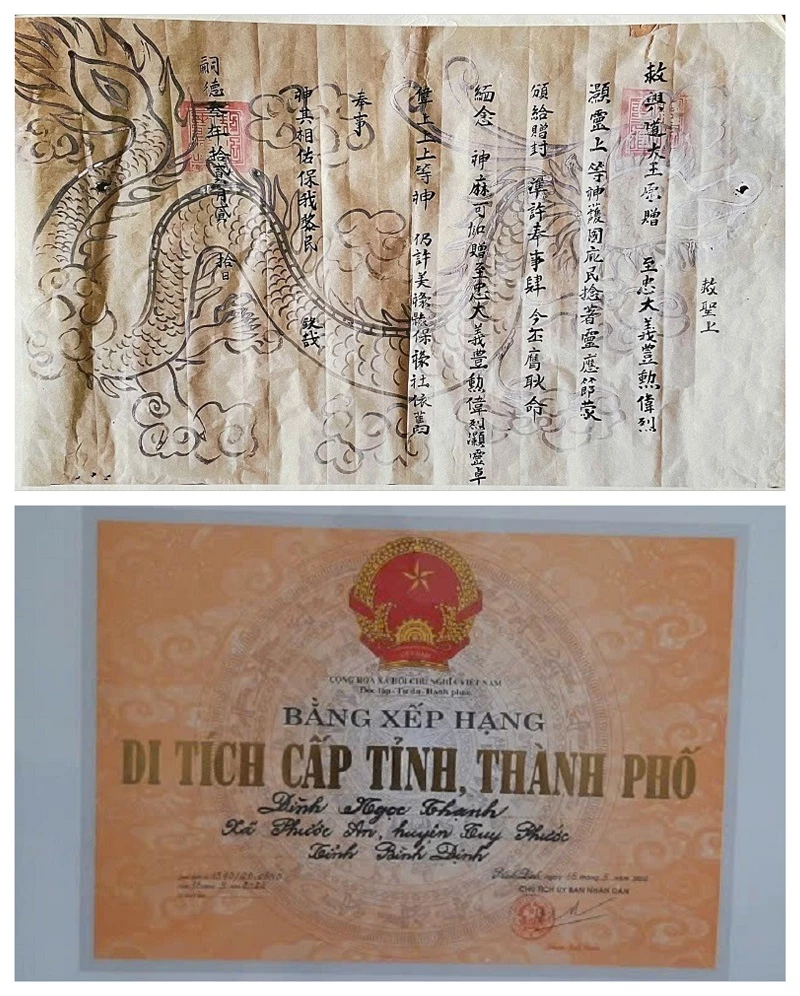 敕聖上
敕興道大王原贈 至忠大義豊勲偉烈
灝靈上等神護國庇民捻著靈應節蒙
頒給贈封 準許奉事肆 今丕膺耿命
緬念 神麻可加贈至忠大義豊勲偉烈灝靈卓
偉上上上等神 仍許美祿縣保祿社依舊
奉事
神其相估保我黎民 欽哉
嗣德叁年拾貳月貳
拾日
CỘNG HÒA XÃ HỘI CHỦ NGHĨA VIỆT NAM
Độc lập - Tự do - Hạnh phúc
BẰNG XẾP HẠNG
DI TÍCH CẤP TỈNH, THÀNH PHỐ
Đình Ngọc Thạnh
Xã Phước An, huyện Tuy Phước
Tỉnh Bình Định
Bình Định, ngày tháng 3 năm
CHỦ TỊCH ỦY BAN NHÂN DÂN